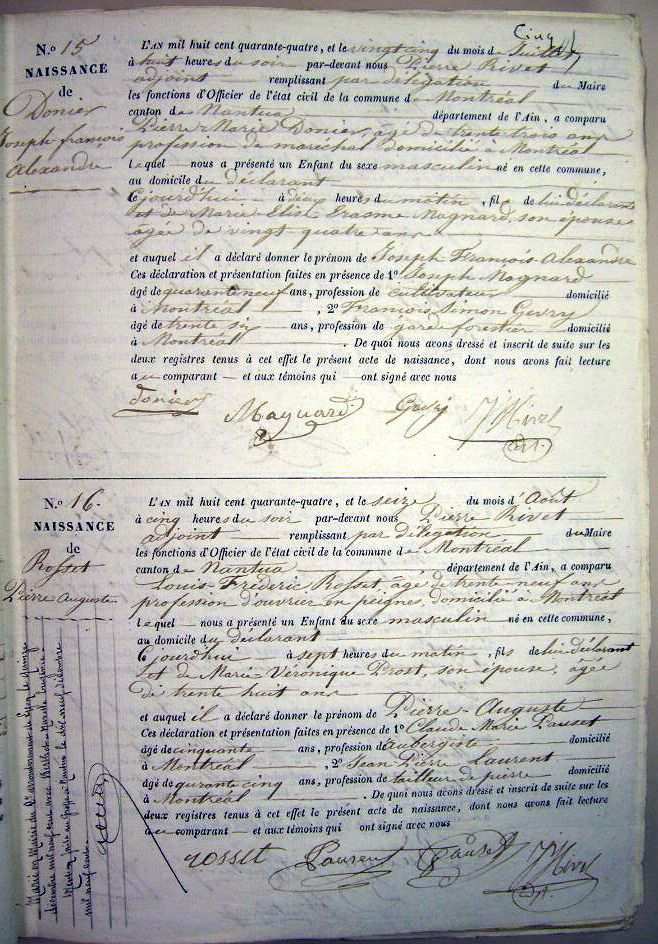 Cinq
N.º 15
NAISSANCE
de
Donier
Joseph françois
Alexandre
L'AN mil huit cent quarante-quatre, et le vingt cinq du mois de Juillet
à huit heures du soir par-devant nous Pierre Rivet
adjoint remplissant par délégation du Maire
les fonctions d'Officier de l'état civil de la commune de Montréal
canton de Nantua département de l'Ain, a comparu
Pierre-Marie Donier, agé de trente trois ans
profession de maréchal domicilié à Montréal
lequel nous a présenté un Enfant du sexe masculin né en cette commune,
au domicile du déclarant
Cejourd'hui à dix heures du matin, fils de lui déclarant
et de Marie Elise Erasme Magnard, son épouse
âgée de vingt quatre ans
et auquel il a déclaré donner le prénom de Joseph François-Alexandre
Ces déclaration et présentation faites en présence de 1º Joseph Magnard
âgé de quarante neuf ans, profession de cultivateur domicilié
à Montréal , 2º François Simon Gevry
âgé de trente six ans, profession de garde forestier domicilié
à Montréal . De quoi nous avons dressé et inscrit de suite sur les
deux registres tenus à cet effet le présent acte de naissance, dont nous avons fait lecture
au comparant et aux témoins qui ont signé avec nous
donier Magnard Gevry P Rivet
adjt.
N.º 16.
NAISSANCE
de
Rosset
Pierre Auguste
L'AN mil huit cent quarante-quatre, et le seize du mois d'Août
à cinq heures du soir par-devant nous Pierre Rivet
adjoint remplissant par délégation du Maire
les fonctions d'Officier de l'état civil de la commune de Montréal
canton de Nantua département de l'Ain, a comparu
Louis Frédéric Rosset âgé de trente neuf ans
profession d'ouvrier en peignes, domicilié à Montréal
lequel nous a présenté un Enfant du sexe masculin né en cette commune,
au domicile du déclarant
Cejourdhui à sept heures du matin, fils de lui déclarant
et de Marie-Véronique Prost, son épouse, âgée
de trente huit ans
et auquel il a déclaré donner le prénom de Pierre-Auguste
Ces déclaration et présentation faites en présence de 1º Claude Marie Pauset
âgé de cinquante ans, profession d'aubergiste domicilié
à Montréal , 2º Jean Pierre Laurent
âgé de quarante cinq ans, profession de tailleur de pierre domicilié
à Montréal . De quoi nous avons dressé et inscrit de suite sur les
deux registres tenus à cet effet le présent acte de naissance, dont nous avons fait lecture
au comparant et aux témoins qui ont signé avec nous
rosset Laurent Pauset P Rivet
adjt.
Marié en Mairie du arrondissement de Lyon le
décembre mil neuf cent avec
Mention faite au Greffe à Nantua le dix neuf décembre
mil neuf cent